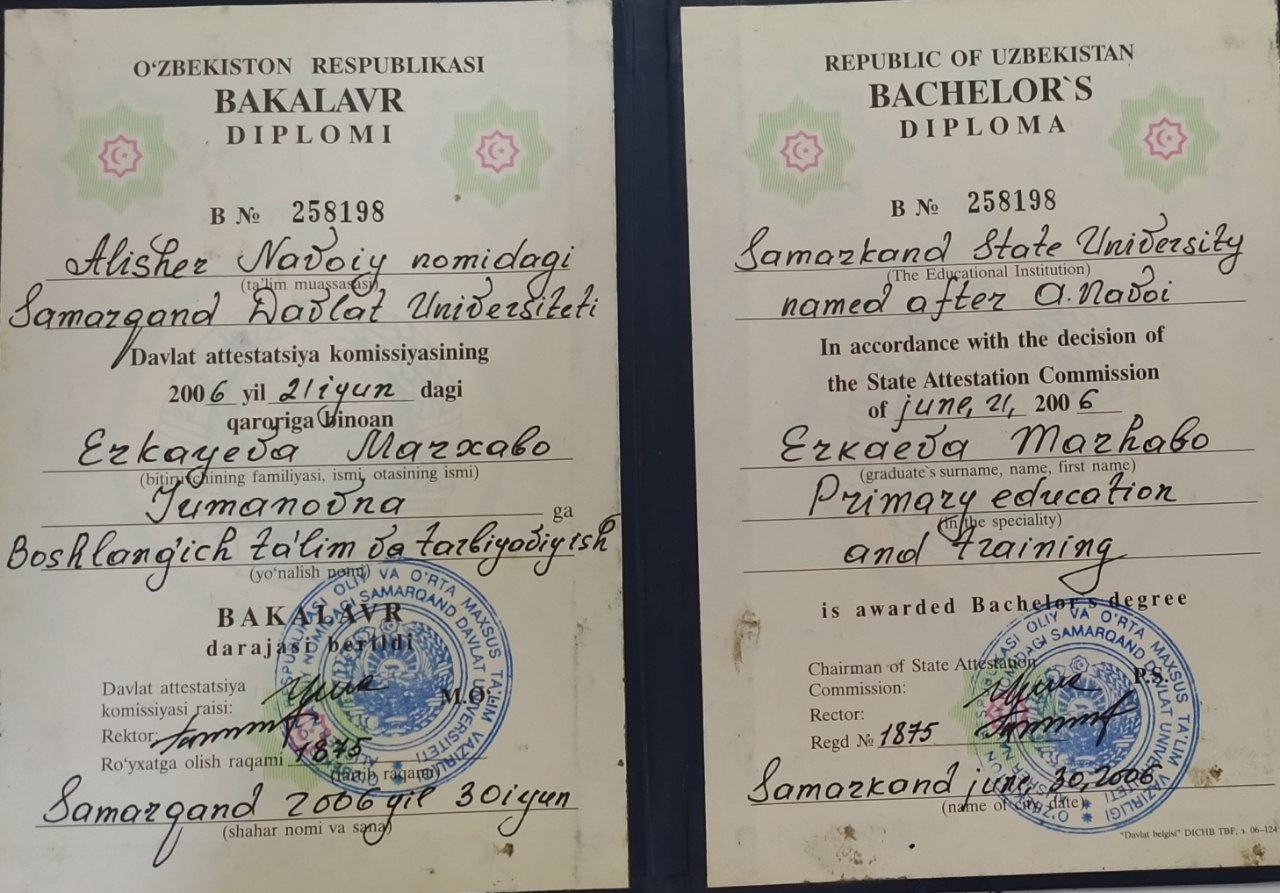 O‘ZBEKISTON RESPUBLIKASI
BAKALAVR
DIPLOMI
B № 258198
Alisher Navoiy nomidagi
(ta'lim muassasasi)
Samarqand Davlat Universiteti
Davlat attestatsiya komissiyasining
2006 yil 21 iyun dagi
qaroriga binoan
Erkayeva Marxabo
(bitiruvchining familiyasi, ismi, otasining ismi)
Jumanovna ga
Boshlang'ich ta'lim va tarbiyaviy ish
(yo‘nalish nomi)
BAKALAVR
darajasi berildi
Davlat attestatsiya
komissiyasi raisi:
M.O‘.
Rektor:
Ro‘yxatga olish raqami 1875
(tartib raqami)
Samarqand 2006 yil 30 iyun
(shahar nomi va sana)
REPUBLIC OF UZBEKISTAN
BACHELOR`S
DIPLOMA
B № 258198
Samarkand State University
(The Educational Institution)
named after A. Navoi
In accordance with the decision of
the State Attestation Commission
of june, 21, 2006
Erkaeva Marhabo
(graduate`s surname, name, first name)
Primary education
(in the speciality)
and training
is awarded Bachelor`s degree
Chairman of State Attestation
Commission:
P.S.
Rector:
Regd № 1875
Samarkand june, 30, 2006
(name of city, date)
"Davlat belgisi" DICHB TBF, з. 06–124